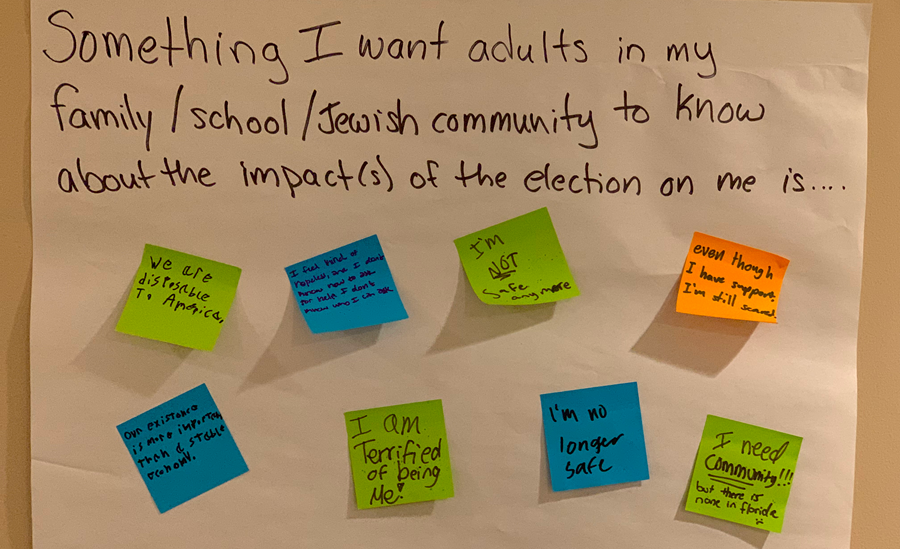 Something I want adults in my
family/school/Jewish community to know
about the impact(s) of the election on me is....
We are
disposable
To America.
I feel kind of
hopeless, and I don't
know how to ask
for help I don't
know who I can ask
I'm
NOT
safe anymore
even though
I have support.
I'm still scared.
Our existence
is more important
than a stable
economy.
I am
Terrified
of being
Me!
I'm no
longer
safe
I need
Community!!!
but there is
none in florida